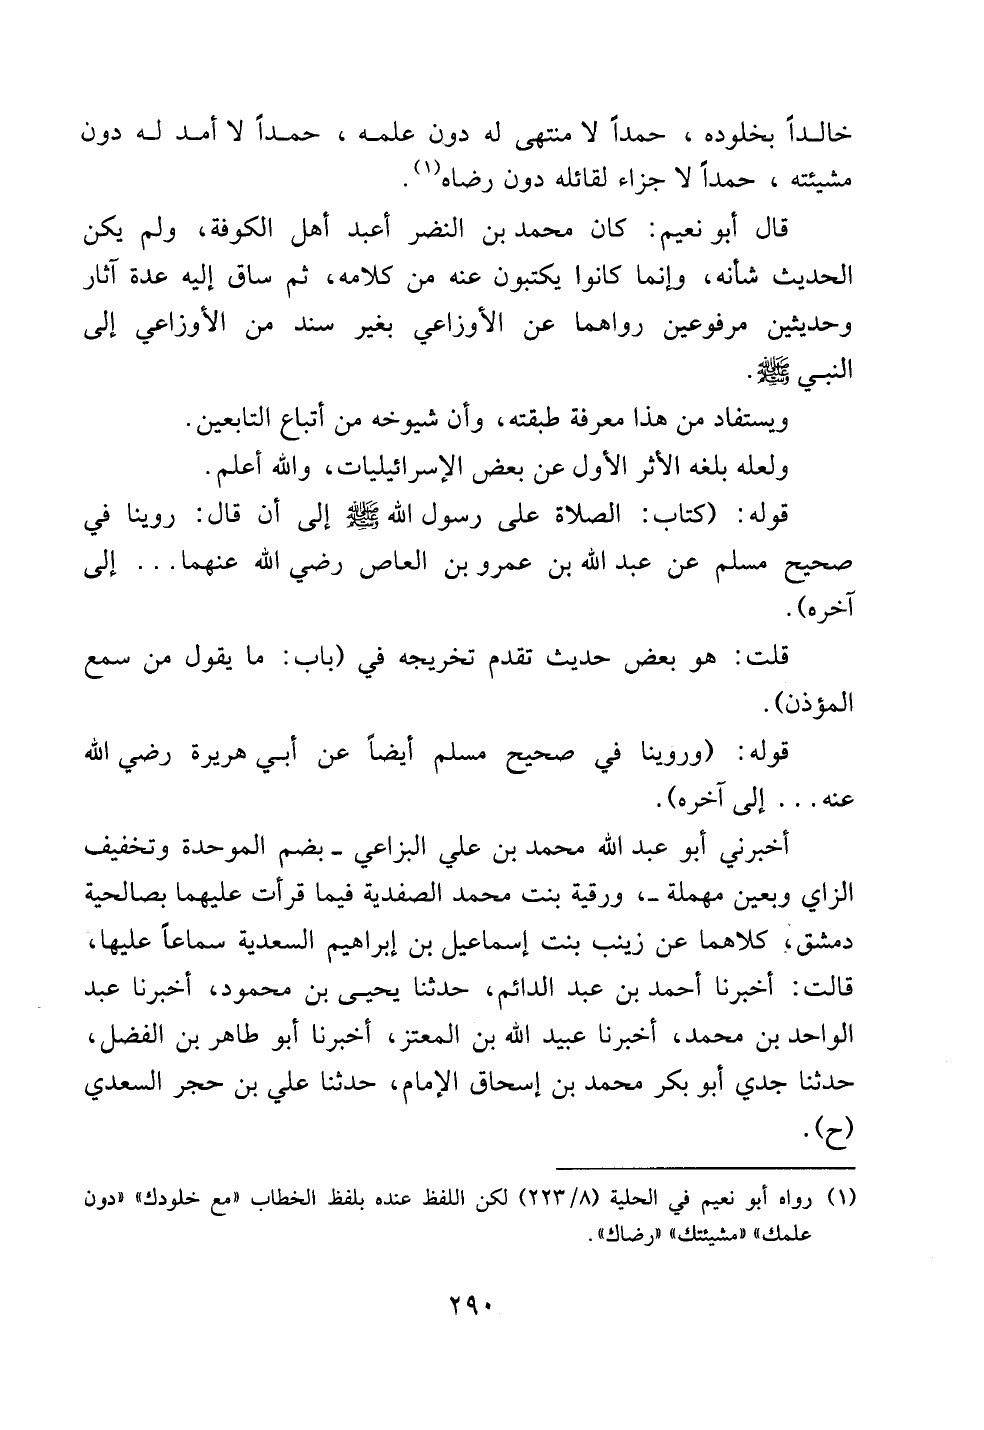 خالـداً بخلوده ، حمداً لا منتهى له دون علمـه ، حمـداً لا أمـد لـه دون
مشيئته ، حمداً لا جزاء لقائله دون رضاه(١) .
قال أبو نعيم: كان محمد بن النضر أعبد أهل الكوفة، ولم يكن
الحديث شأنه، وإنما كانوا يكتبون عنه من كلامه، ثم ساق إليه عدة آثار
وحديثين مرفوعين رواهما عن الأوزاعي بغير سند من الأوزاعي إلى
النبـي ﷺ.
ويستفاد من هذا معرفة طبقته، وأن شيوخه من أتباع التابعين.
ولعله بلغه الأثر الأول عن بعض الإسرائيليات، والله أعلم.
قوله: (كتاب: الصلاة على رسول الله ﷺ إلى أن قال: روينا في
صحيح مسلم عن عبد الله بن عمرو بن العاص رضي الله عنهما... إلى
آخره).
قلت: هو بعض حديث تقدم تخريجه في (باب: ما يقول من سمع
المؤذن).
قوله: (وروينا في صحيح مسلم أيضاً عن أبـي هريرة رضي الله
عنه... إلى آخره).
أخبرني أبو عبد الله محمد بن علي البزاعي ـ بضم الموحدة وتخفيف
الزاي وبعين مهملة ـ، ورقية بنت محمد الصفدية فيما قرأت عليهما بصالحية
دمشق، كلاهما عن زينب بنت إسماعيل بن إبراهيم السعدية سماعاً عليها،
قالت: أخبرنا أحمد بن عبد الدائم، حدثنا يحيـى بن محمود، أخبرنا عبد
الواحد بن محمد، أخبرنا عبيد الله بن المعتز، أخبرنا أبو طاهر بن الفضل،
حدثنا جدي أبو بكر محمد بن إسحاق الإمام، حدثنا علي بن حجر السعدي
(ح).
(١) رواه أبو نعيم في الحلية (٢٢٣/٨) لكن اللفظ عنده بلفظ الخطاب «مع خلودك» «دون
علمك» «مشيئتك» «رضاك».
٢٩٠